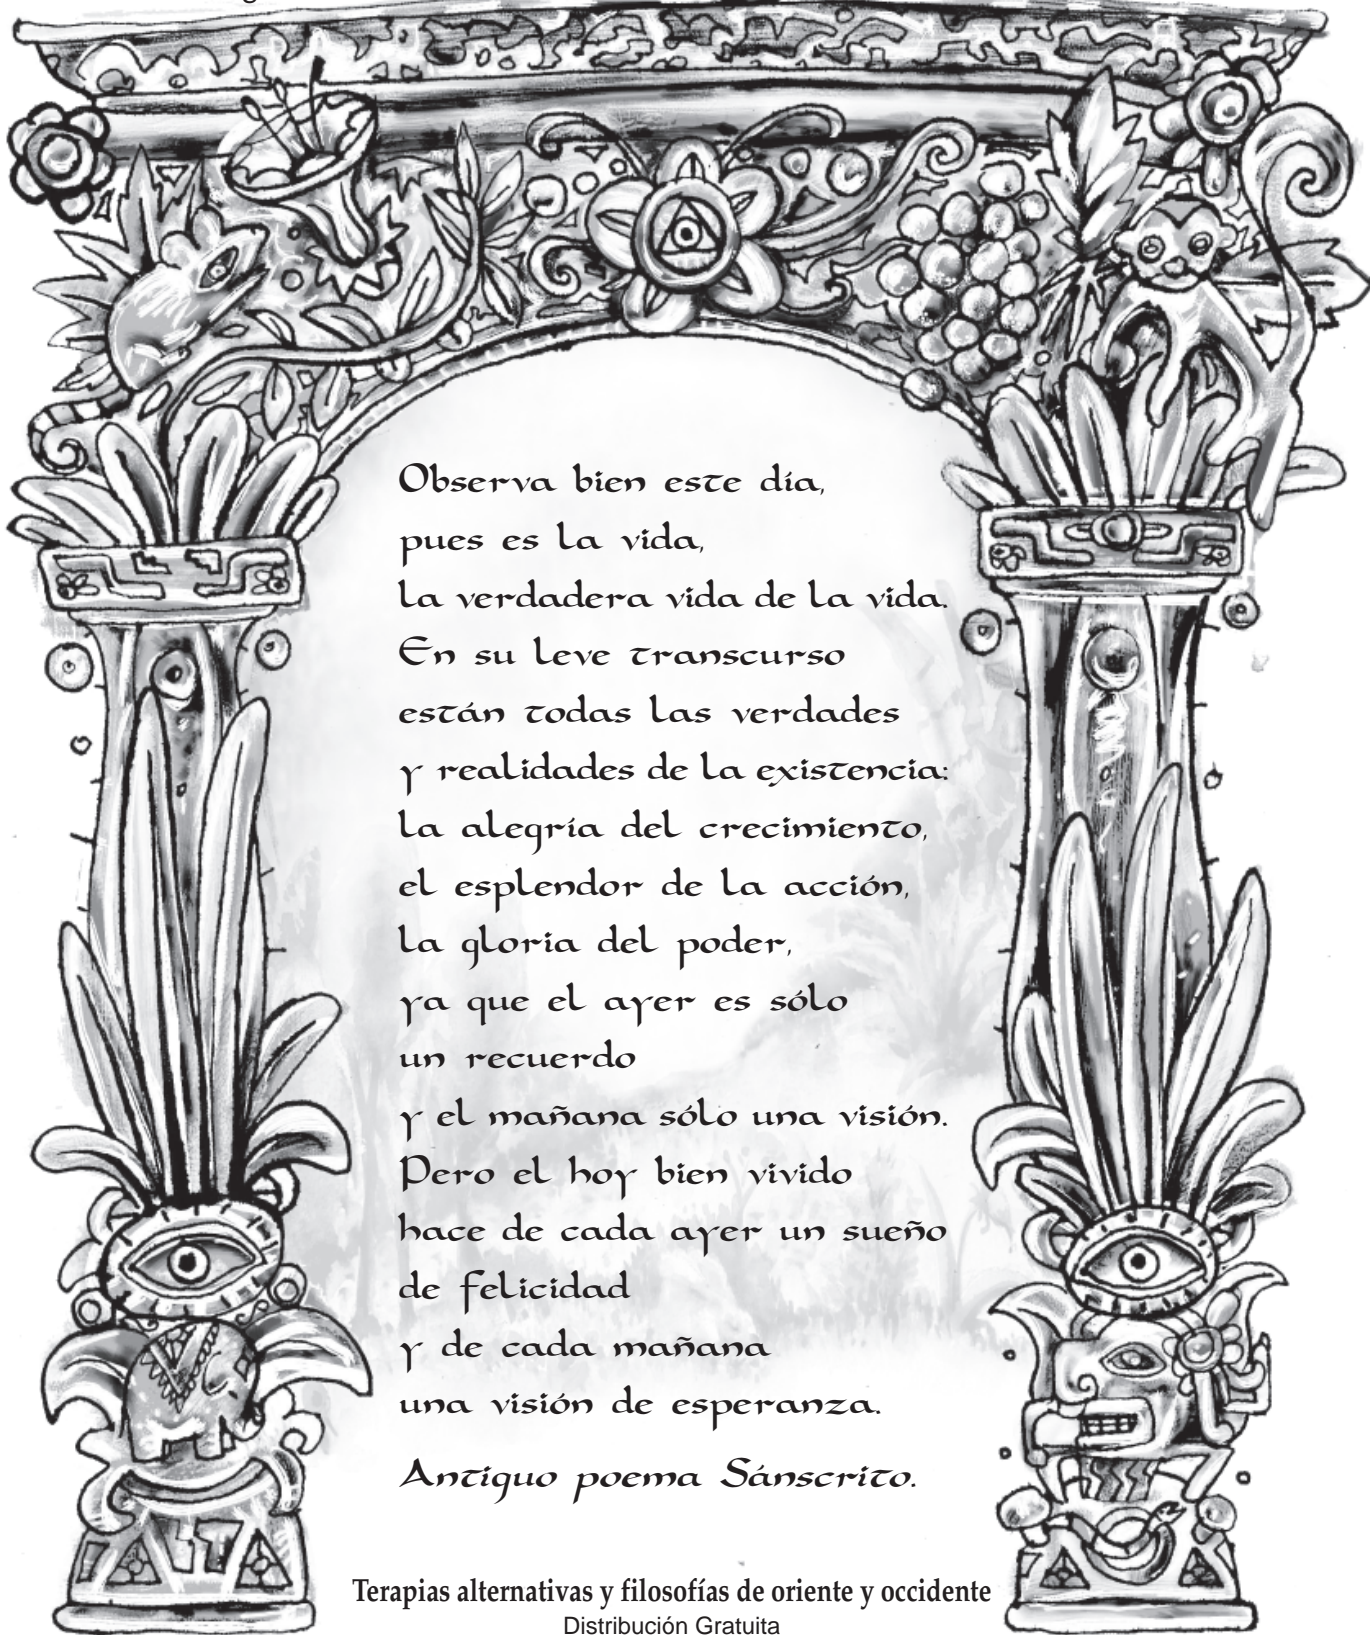 Observa bien este día,
pues es la vida,
la verdadera vida de la vida.
En su leve transcurso
están todas las verdades
y realidades de la existencia:
la alegría del crecimiento,
el esplendor de la acción,
la gloria del poder,
ya que el ayer es sólo
un recuerdo
y el mañana sólo una visión.
Pero el hoy bien vivido
hace de cada ayer un sueño
de felicidad
y de cada mañana
una visión de esperanza.
Antiguo poema Sánscrito.
Terapias alternativas y filosofías de oriente y occidente
Distribución Gratuita